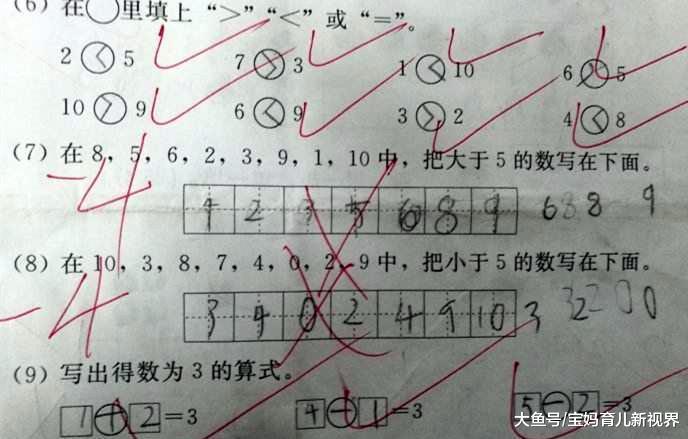 (6) 在○里填上“>”“<”或“=”。
2 < 5 7 > 3 1 < 10 6 > 5
10 > 9 6 < 9 3 > 2 4 < 8
(7) 在 8，5，6，2，3，9，1，10 中，把大于 5 的数写在下面。
-4
1 2 3 5 6 8 9 6 8 8 9
(8) 在 10，3，8，7，4，0，2，9 中，把小于 5 的数写在下面。
-4
3 4 0 2 4 9 10 3 2 0
(9) 写出得数为 3 的算式。
1+2=3 4-1=3 5-2=3
大鱼号/宝妈育儿新视界